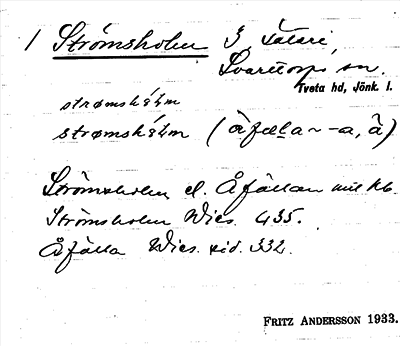 1 Strömsholm
Svarttorps sn.
Tveta hd, Jönk. l.
strømshɛ́lm
strømshɛ́lm (åfælla ~ -a, à)
Strömsholm el. Åfällan enl kb.
Strömsholm Wies. 435.
Åfälla Wies. sid. 332.
FRITZ ANDERSSON 1933.